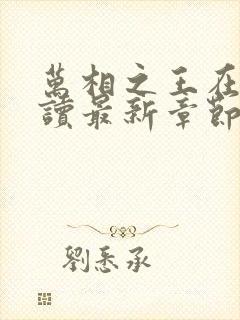 萬相之王在
讀最新章節
劉悉承